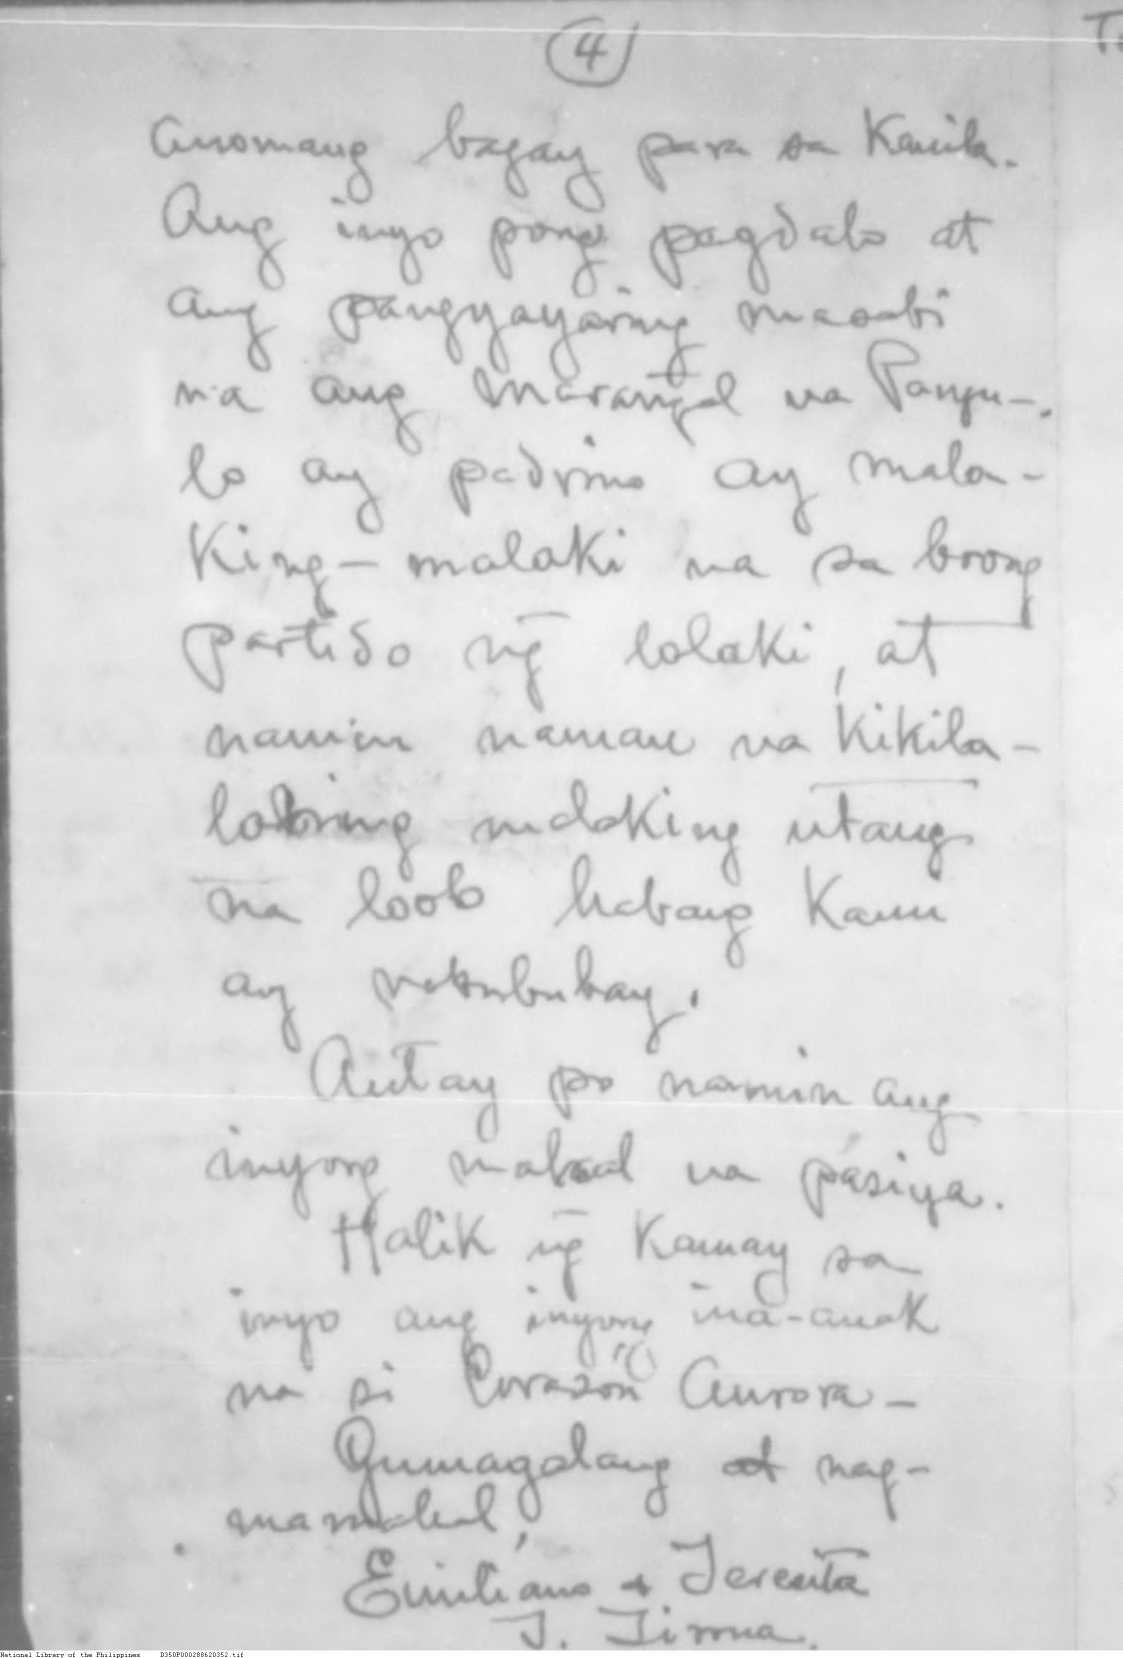 4
T
anomang bagay para sa Kanila.
Ang inyo pong pagdalo at
ang pangyayaring masabi
na ang marangal na Pangu-
lo ay padrino ay mala-
king-malaki na sa boong
partido ng̃ lalaki, at
namin naman na Kikila-
laning malaking utang
na loob habang Kami
ay nabubuhay.
Antay po namin ang
inyong mahal na pásiya.
Halik ng̃ Kamay sa
inyo ang inyong ina-anak
na si Corazón Aurora-
Gumagalang at nag-
mamahal,
Emiliano & Teresita
J. Tirona.
National Library of the Philippines D350P000288620352.tif